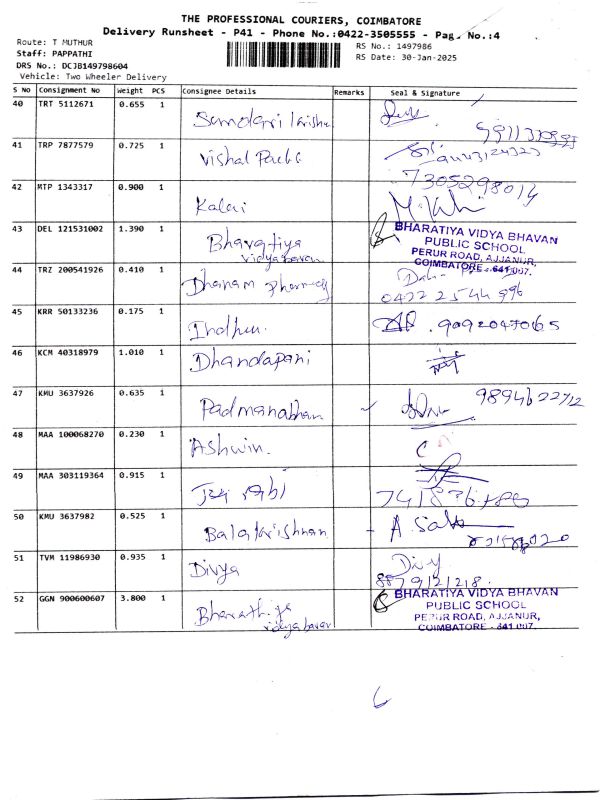 THE PROFESSIONAL COURIERS, COIMBATORE
Delivery Runsheet - P41 - Phone No.:0422-3505555 - Page No.:4
Route: T MUTHUR
Staff: PAPPATHI
DRS No.: DCJB149798604
Vehicle: Two Wheeler Delivery
RS No.: 1497986
RS Date: 30-Jan-2025
S No Consignment No Weight PCS Consignee Details Remarks Seal & Signature
40 TRT 5112671 0.655 1
41 TRP 7877579 0.725 1 Vishal
7305298014
42 MTP 1343317 0.900 1 Kalai
43 DEL 121531002 1.390 1 Bharatiya vidyabavan
BHARATIYA VIDYA BHAVAN
PUBLIC SCHOOL
PERUR ROAD, AJJANUR,
COIMBATORE - 641 007.
44 TRZ 200541926 0.410 1 Dhanam pharmacy
0422 2544 996
45 KRR 50133236 0.175 1 Indhu. 9092047065
46 KCM 40318979 1.010 1 Dhandapani
47 KMU 3637926 0.635 1 Padmanabhan 9894622712
48 MAA 100068270 0.230 1 Ashwin.
49 MAA 303119364 0.915 1
50 KMU 3637982 0.525 1 Balakrishnan
51 TVM 11986930 0.935 1 Divya Divy
8879121218.
52 GGN 900600607 3.800 1 Bharathiya vidyabavan
BHARATIYA VIDYA BHAVAN
PUBLIC SCHOOL
PERUR ROAD, AJJANUR,
COIMBATORE - 641 007.